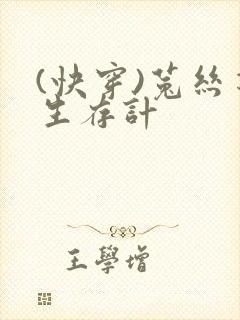 (快穿)菟絲
生存計
王學增